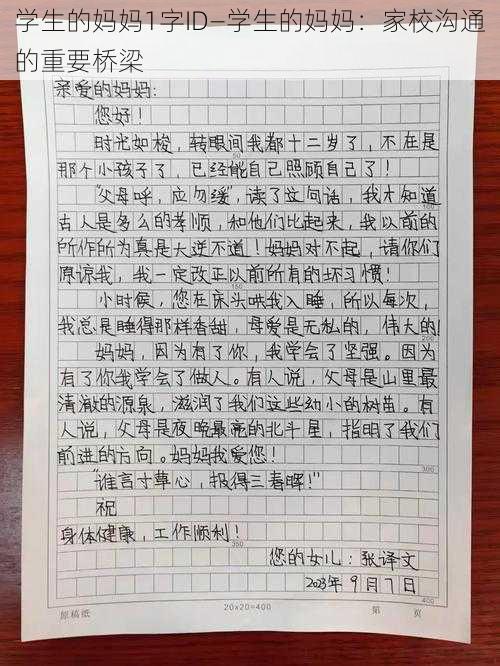 学生的妈妈1字ID—学生的妈妈：家校沟通
的重要桥梁
亲爱的妈妈：
您好！
时光如梭，转眼间我都十二岁了，不在是
那个小孩子了，已经能自己照顾自己了！
“父母呼，应勿缓”，读了这句话，我才知道
古人是多么的孝顺，和他们比起来，我以前的
所作所为真是大逆不道！妈妈对不起，请你们
原谅我，我一定改正以前所有的坏习惯！
小时候，您在床头哄我入睡，所以每次，
我总是睡得那样香甜，母爱是无私的，伟大的！
妈妈，因为有了你，我学会了坚强。因为
有了你我学会了做人。有人说，父母是山里最
清澈的源泉，滋润了我们这些幼小的树苗。有
人说，父母是夜晚最亮的北斗星，指明了我们
前进的方向。妈妈我爱您！
300
“谁言寸草心，报得三春晖！”
祝
身体健康，工作顺利！
您的女儿：张译文
2023年9月7日
原稿纸 20×20=400 第 页